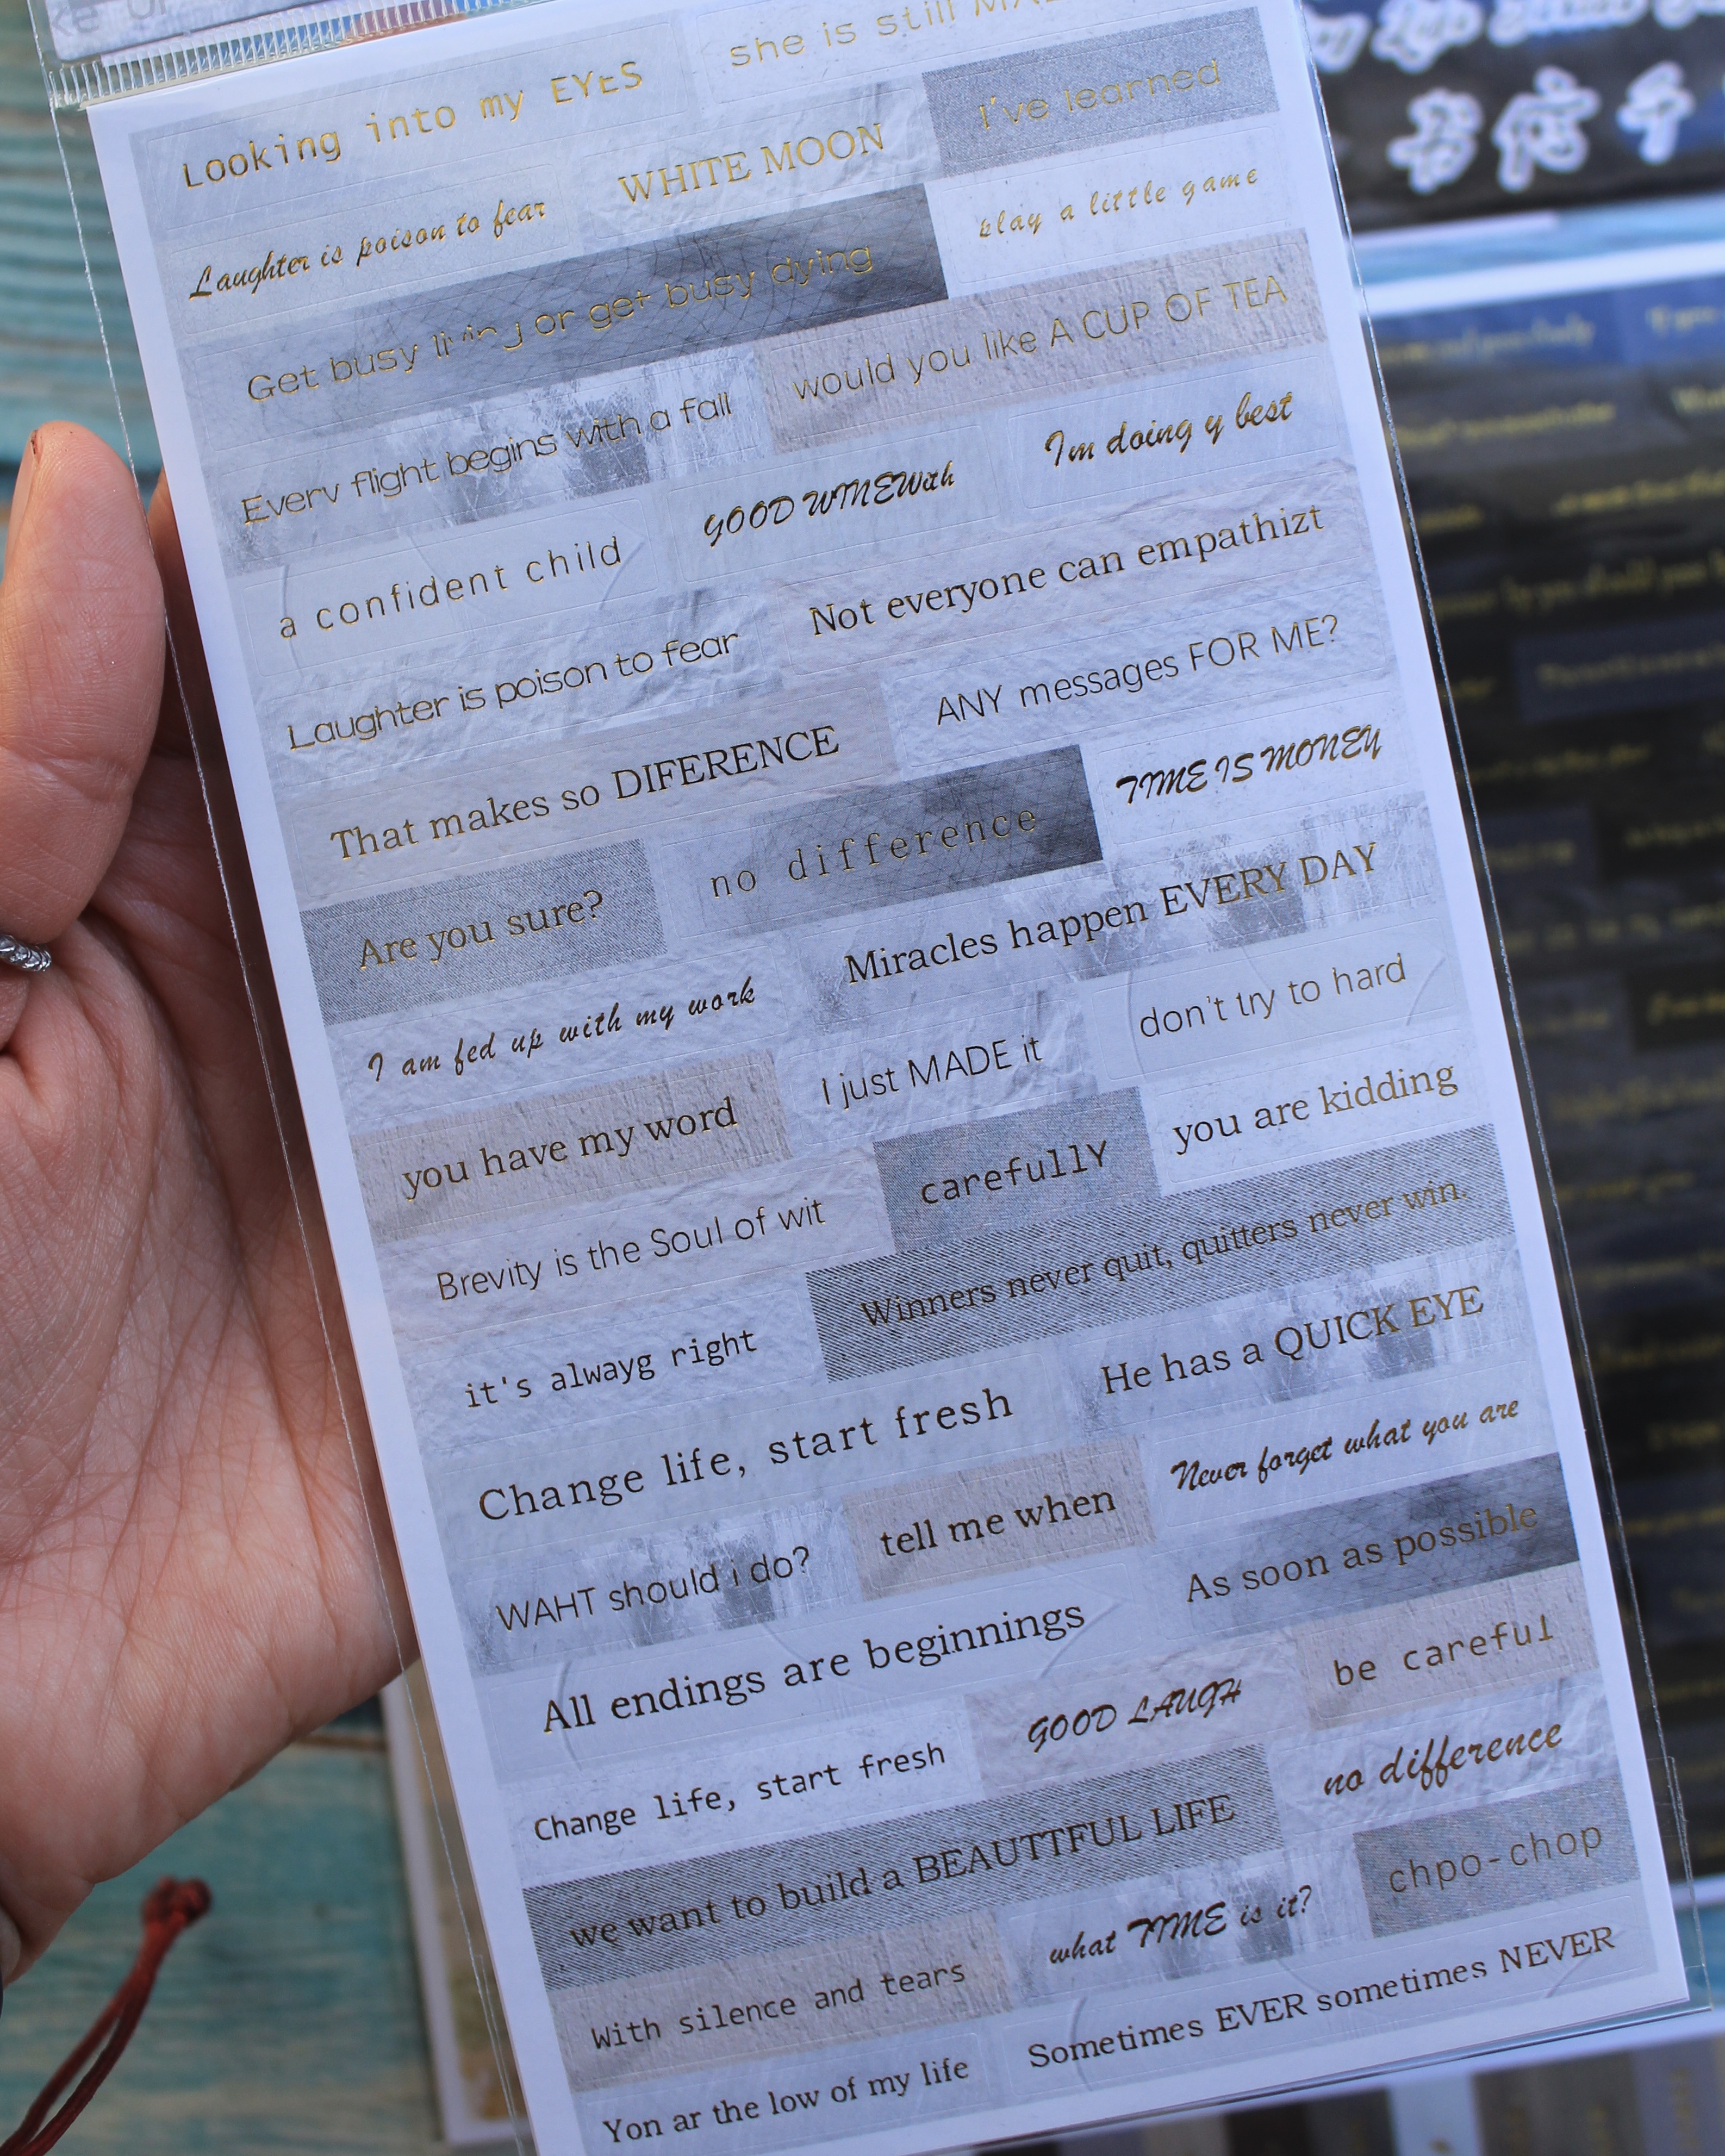 Looking into my EYES
she is still
I've learned
WHITE MOON
Laughter is poison to fear
play a little game
Get busy living or get busy dying
would you like A CUP OF TEA
Every flight begins with a fall
Im doing y best
GOOD WINEWith
a confident child
Not everyone can empathizt
Laughter is poison to fear
ANY messages FOR ME?
That makes so DIFERENCE
TIME IS MONEY
no difference
Are you sure?
Miracles happen EVERY DAY
I am fed up with my work
don't try to hard
I just MADE it
you have my word
you are kidding
carefullY
Brevity is the Soul of wit
Winners never quit, quitters never win.
it's alwayg right
He has a QUICK EYE
Change life, start fresh
Never forget what you are
tell me when
WAHT should i do?
As soon as possible
All endings are beginnings
be careful
GOOD LAUGH
Change life, start fresh
no difference
we want to build a BEAUTTFUL LIFE
chpo-chop
what TIME is it?
With silence and tears
Sometimes EVER sometimes NEVER
Yon ar the low of my life